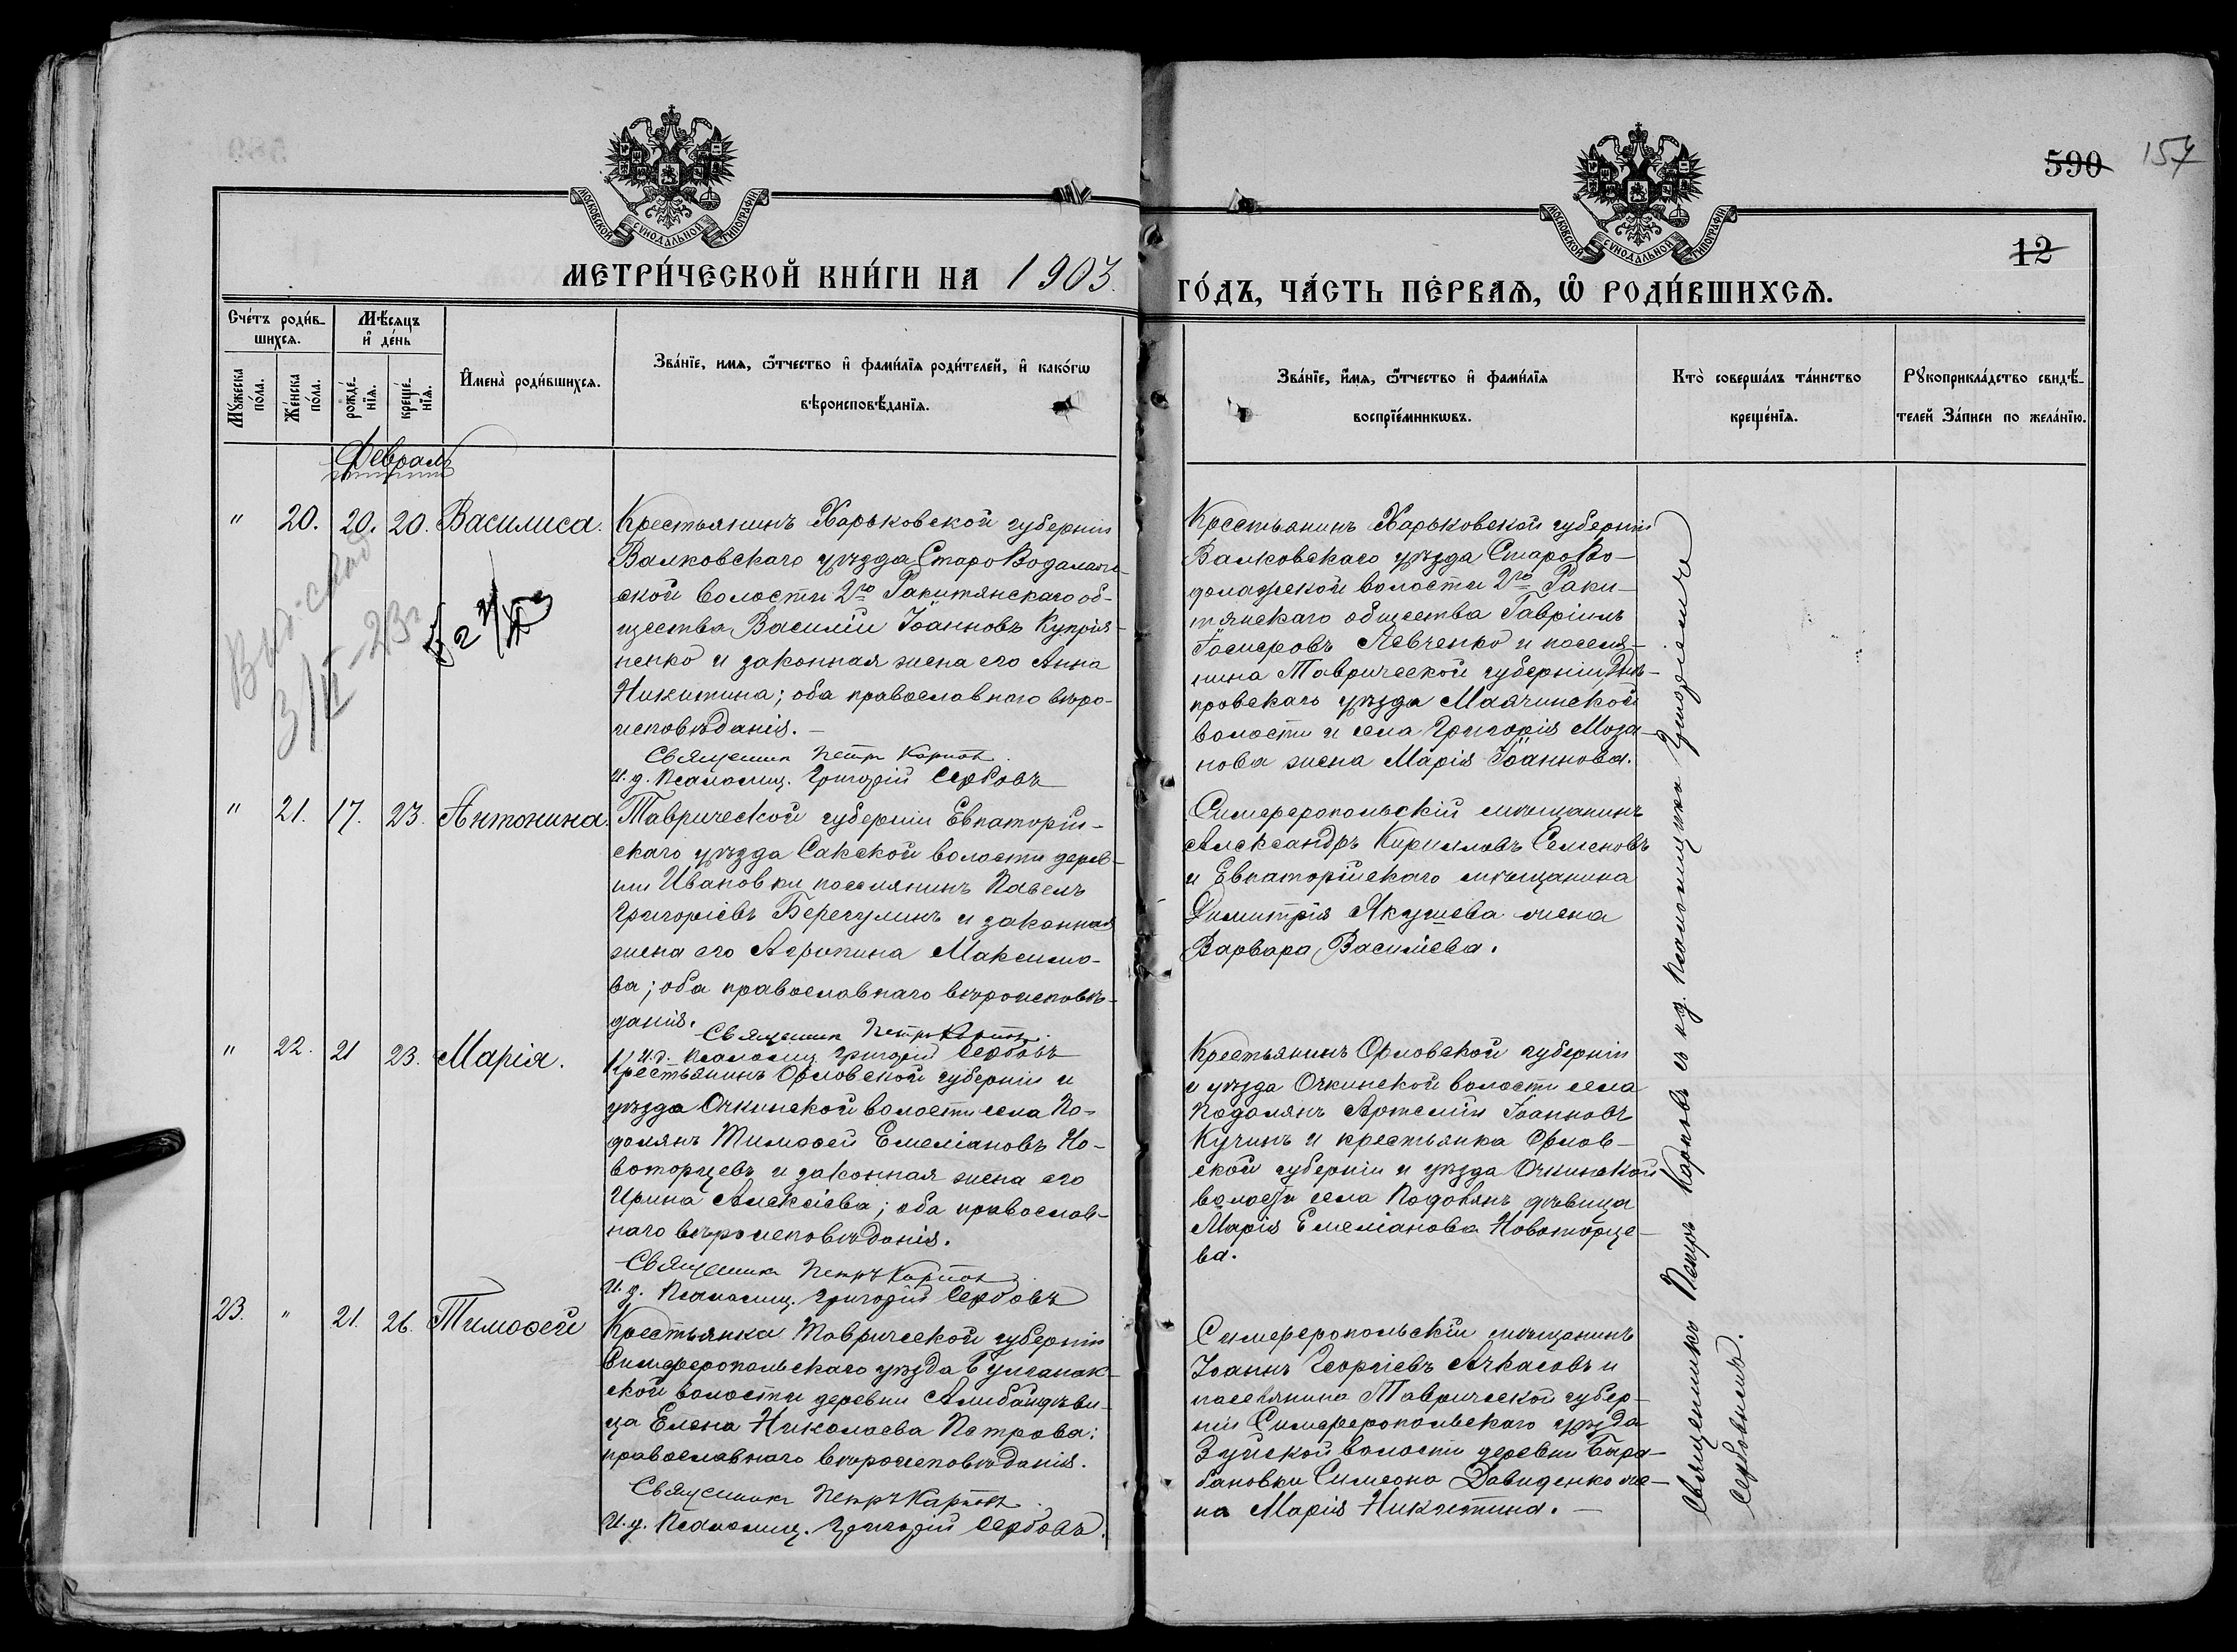 590 157
12
МОСКОВСКОЙ СѴНОДАЛЬНОЙ ТИПОГРАФІИ
МОСКОВСКОЙ СѴНОДАЛЬНОЙ ТИПОГРАФІИ
МЕТРИ́ЧЕСКОЙ КНИ́ГИ НА 1903.
ГО́ДЪ, ЧА́СТЬ ПЕ́РВАѦ, Ѽ РОДИ́ВШИХСѦ.
Сче́тъ роди́в-
шихсѧ.
Мѣ́сѧцъ
и҆ де́нь
Мꙋ́жеска по́ла.
Же́нска по́ла.
рожде́-нїѧ.
креще́-нїѧ.
И҆мена̀ роди́вшихсѧ.
Зва́нїе, имѧ, ѻ҆́тчество и҆ фами́лїѧ роди́телей, и҆ како́гѡ
вѣроисповѣ́данїѧ.
Зва́нїе, и҆́мѧ, ѻ҆́тчество и҆ фами́лїѧ
воспрїе́мникѡвъ.
Кто̀ соверша́лъ та́инство
креще́нїѧ.
Рꙋкоприкла́дство свидѣ́-
телей За́писи по жела́нїю.
Февраль
" 20. 20. 20. Василиса.
Крестьянинъ Харьковской губерніи
Валковскаго уѣзда Старо Водолаж-
ской волости 2го Ракитянскаго об-
щества Василій Іоанновъ Куприя-
ненко и законная жена его Анна
Никитина; оба православнаго вѣро-
исповѣданія. –
Священник Петръ Карпов
И. д. Псаломщ. Григорій Сербовъ
Крестьянинъ Харьковской губерніи
Валковскаго уѣзда Старо Во-
долажской волости 2го Раки-
тянскаго общества Гавріилъ
Іосифовъ Левченко и поселя-
нина Таврической губерніи, Днѣ-
провскаго уѣзда Маячинской
волости и села Григорія Моза-
нова жена Марія Іоаннова.
3/VI – 23г
" 21. 17. 23. Антонина.
Таврической губерніи Евпаторій-
скаго уѣзда Сакской волости дерев-
ни Ивановки поселянинъ Павелъ
Григоріевъ Берегулинъ и законная
жена его Агрипина Максимо-
ва; оба православнаго вѣроисповѣ-
данія.
Священник Петръ Карпов
И. д. Псаломщ. Григорій Сербовъ
Симферопольскій мѣщанинъ
Александръ Кирилловъ Семеновъ
и Евпаторійскаго мѣщанина
Димитрія Якушева жена
Варвара Василіева.
" 22. 21 23. Марія.
Крестьянинъ Орловской губерніи и
уѣзда Очкинской волости села По-
долянъ Тимоѳей Емеліановъ Но-
воторцевъ и законная жена его
Ирина Алексіева; оба православ-
наго вѣроисповѣданія.
Священник Петръ Карпов
И. д. Псаломщ. Григорій Сербовъ
Крестьянинъ Орловской губерніи
и уѣзда Очкинской волости села
Подолянъ Артемій Іоанновъ
Кучинъ и крестьянка Орлов-
ской губерніи и уѣзда Очкинской
волости села Подолянъ дѣвица
Марія Емеліанова Новоторце-
ва.
23. " 21. 26. Тимоѳей
Крестьянка Таврической губерніи
Симферопольскаго уѣзда Булганак-
ской волости деревни Алибай дѣви-
ца Елена Николаева Петрова:
православнаго вѣроисповѣданія.
Священник Петръ Карпов
И. д. Псаломщ. Григорій Сербовъ.
Симферопольскій мѣщанинъ
Іоаннъ Георгіевъ Ачкасовъ и
поселянина Таврической губер-
ніи Симферопольскаго уѣзда
Зуйской волости деревни Бара-
бановки Симеона Давиденко же-
на Марія Никитина. –
Священникъ Петръ Карповъ съ и.д. псаломщика Григоріемъ
Сербовымъ.